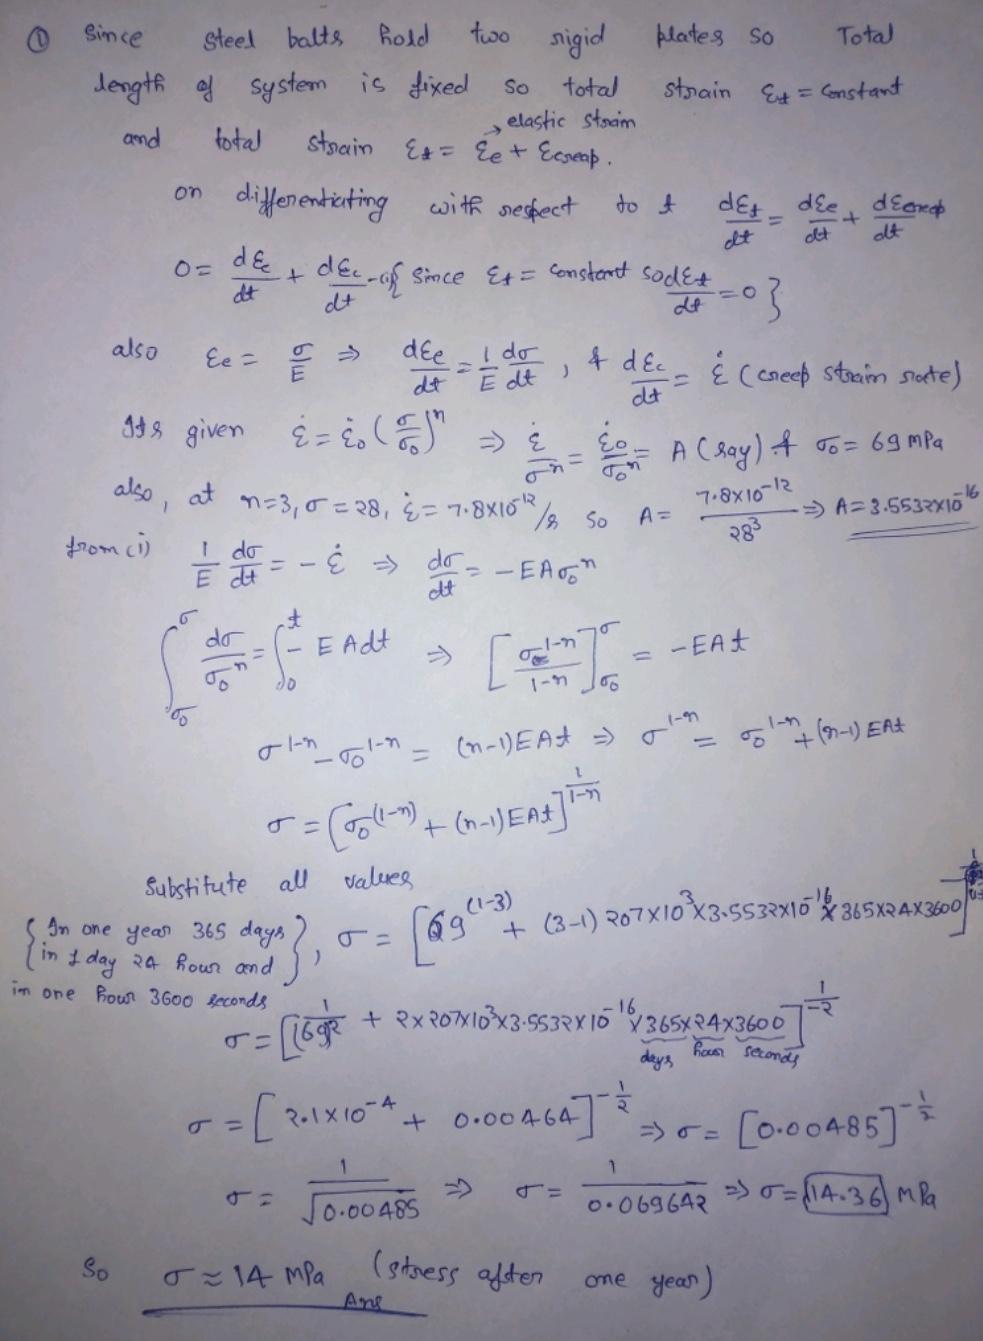 ① Since steel bolts hold two rigid plates so Total
length of system is fixed so total strain εt = Constant
and total strain εt = εe + εcreep. → elastic strain
on differentiating with respect to t dεt/dt = dεe/dt + dεcreep/dt
0 = dεe/dt + dεc/dt -(i) { Since εt = constant so dεt/dt = 0 }
also εe = σ/E ⇒ dεe/dt = 1/E dσ/dt , & dεc/dt = ε̇ (creep strain rate)
It's given ε̇ = ε̇o (σ/σo)^n ⇒ ε̇/σ^n = ε̇o/σo^n = A (say) & σo = 69 MPa
also, at n=3, σ = 28, ε̇ = 7.8×10^-12/s so A = 7.8×10^-12/28^3 ⇒ A = 3.5532×10^-16
from (i) 1/E dσ/dt = - ε̇ ⇒ dσ/dt = - EAσo^n
∫_σo^σ dσ/σo^n = ∫_0^t - E A dt ⇒ [σ^1-n/1-n]_σo^σ = - EAt
σ^1-n - σo^1-n = (n-1)EAt ⇒ σ^1-n = σo^1-n + (n-1) EAt
σ = [σo^(1-n) + (n-1)EAt]^1/1-n
Substitute all values
{ In one year 365 days in 1 day 24 hour and in one hour 3600 seconds }, σ = [69^(1-3) + (3-1) 207×10^3×3.5532×10^-16 × 365×24×3600]
σ = [1/69^2 + 2×207×10^3×3.5532×10^-16 × 365×24×3600]^1/-2
days hour seconds
σ = [2.1×10^-4 + 0.00464]^-1/2 ⇒ σ = [0.00485]^-1/2
σ = 1/√0.00485 ⇒ σ = 1/0.069642 ⇒ σ = 14.36 MPa
So σ ≈ 14 MPa (stress after one year)
Ans